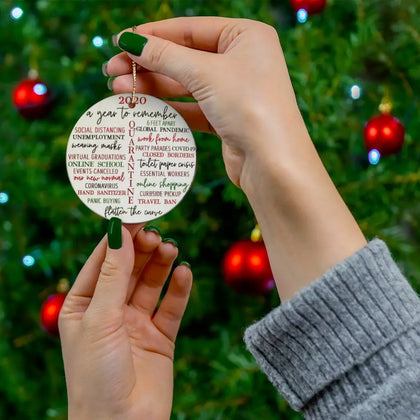 2020
a year to remember
SOCIAL DISTANCING
UNEMPLOYMENT
wearing masks
VIRTUAL GRADUATIONS
ONLINE SCHOOL
EVENTS CANCELED
our new normal
CORONAVIRUS
HAND SANITIZER
PANIC BUYING
QUARANTINE
6 FEET APART
GLOBAL PANDEMIC
work from home
PARTY PARADES COVID19
CLOSED BORDERS
toilet paper crisis
ESSENTIAL WORKERS
online shopping
CURBSIDE PICKUP
TRAVEL BAN
flatten the curve